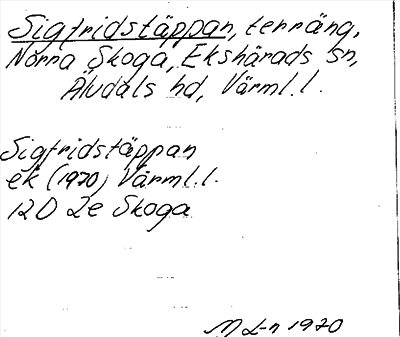 Sigfridstäppan, terräng,
Norra Skoga, Ekshärads sn,
Älvdals hd, Värml.l.
Sigfridstäppan
ek (1970) Värml.l.
12D 2e Skoga
M L-n 1970